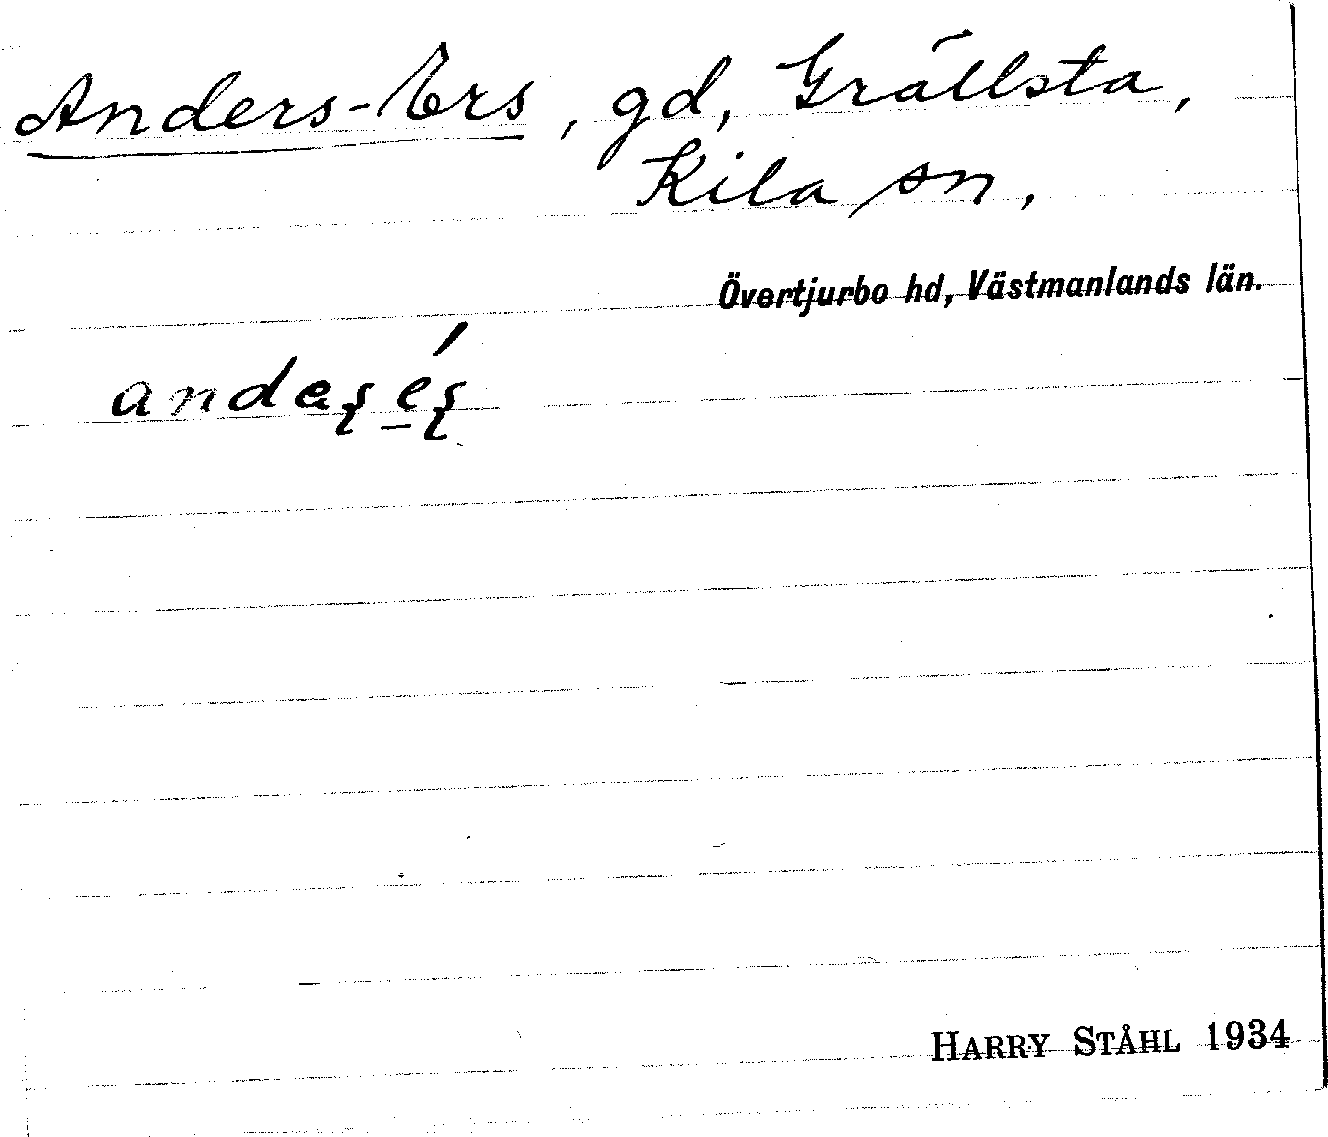 Anders-Ers, gd, Grällsta,
Kila sn,
Övertjurbo hd, Västmanlands län.
HARRY STÅHL 1934